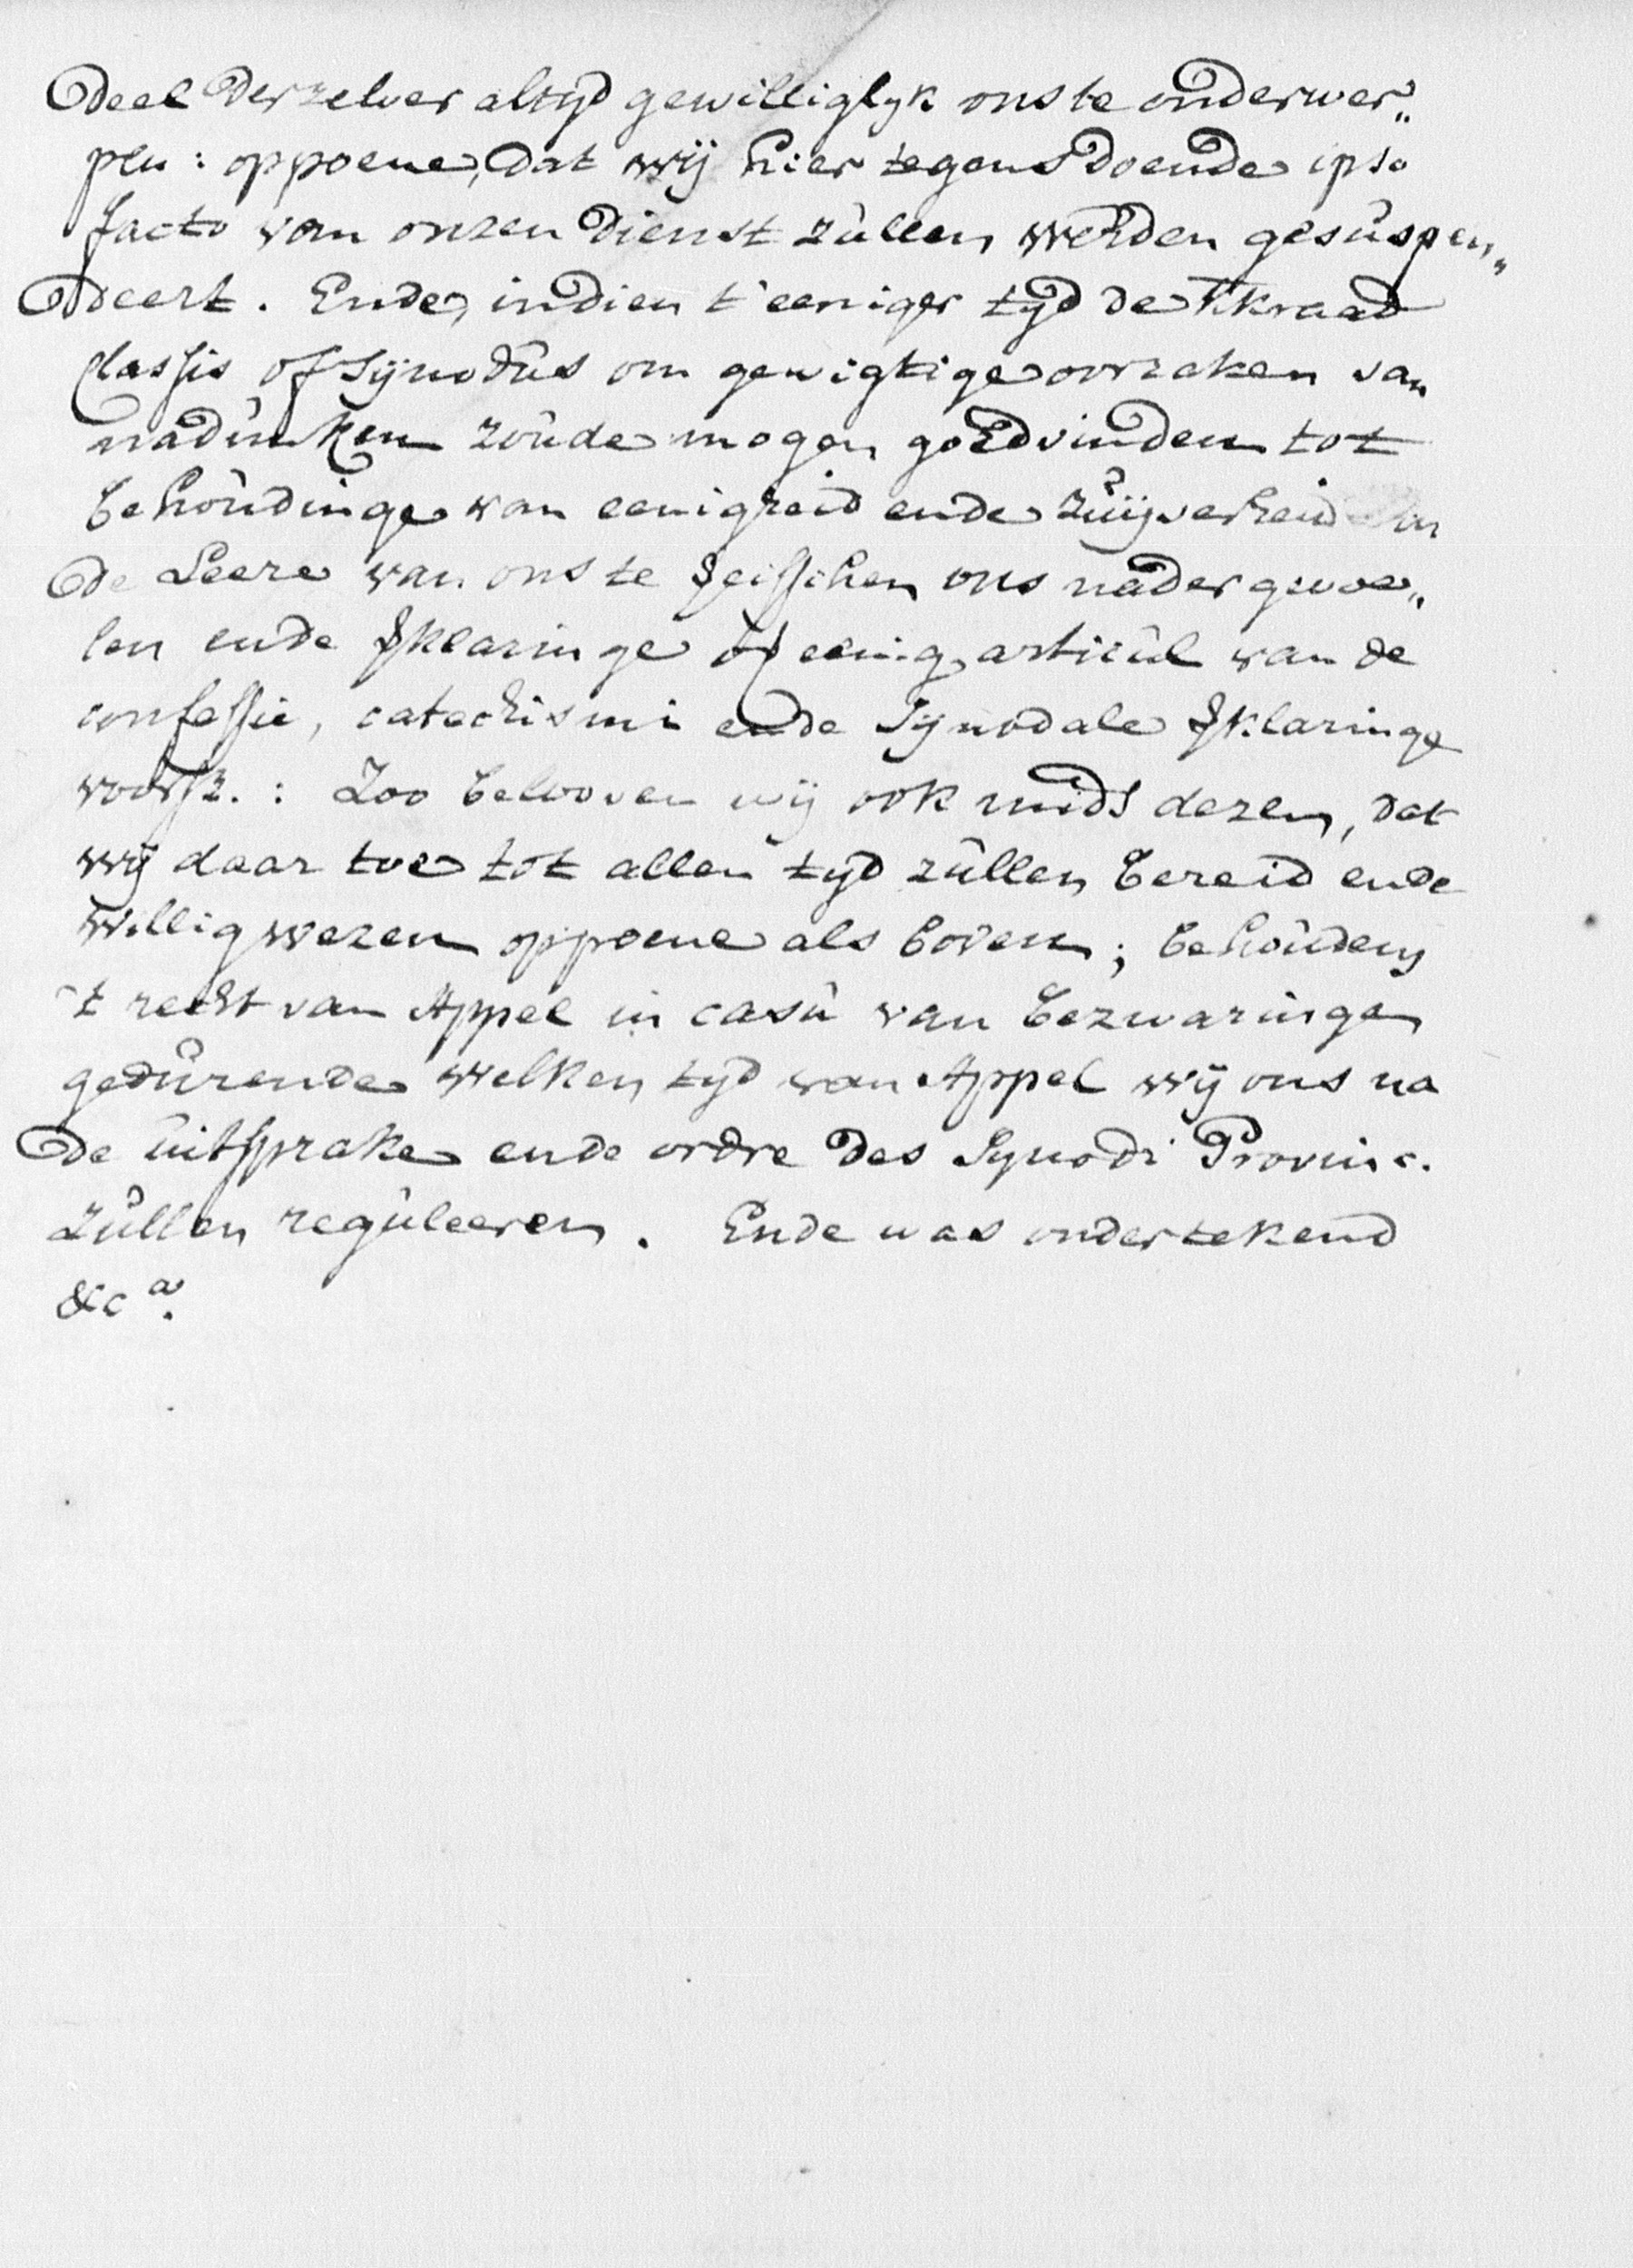 Deel derzelver altijd gewilliglyk ons te onderwer„
pen : op poene, dat wij hier tegens doende ipso
facto van onzen dienst zullen werden gesuspen„
deert. Ende, indien t'eeniger tyd de Kkraad
Classis of Synodus om gewigtige oorzaken van
nadenken zoude mogen goedvinden tot
behoudinge van eenigheid ende zuijverheid in
de Leere van ons te eisschen ons nader gevoe„
len ende verklaringe op eenig articul van de
confessie, catechismi ende Synodale verklaringe
voorsz. : Zoo belooven wij ook mids dezen, dat
wij daar toe tot allen tyd zullen bereid ende
willig wezen op poene als boven ; behoudens
't recht van Appel in casu van bezwaringen
gedurende welken tyd van Appel wij ons na
de uitsprake ende ordre des Synodi Provinc.
zullen reguleeren. Ende was ondertekend
&c a.